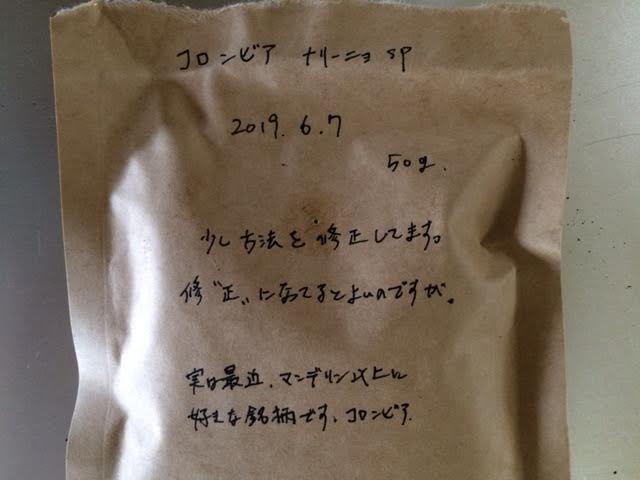 コロンビア ナリーニョ SP
2019.6.7
50g.
少し方法を修正してます。
修"正"になってるとよいのですが。
実は最近、マンデリン以上に
好きな銘柄です、コロンビア.